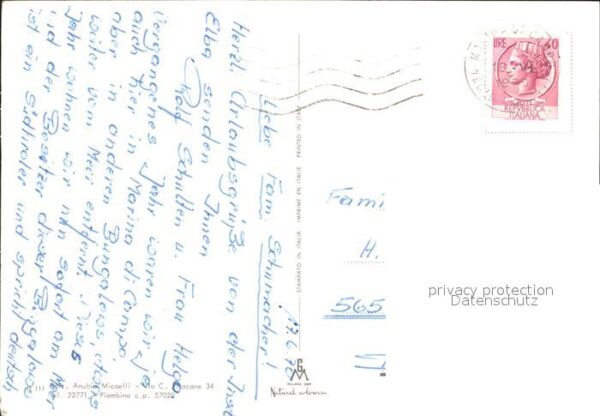 Liebe Fam. Schumacher!
Herzl. Urlaubsgrüße von der Insel
Elba senden Ihnen
Rolf Schulten u. Frau Helga
Vergangenes Jahr waren wir ja
auch hier in Marina di Campo
aber in anderen Bungalows, etwas
weiter vom Meer entfernt. Dieses
Jahr wohnen wir nun sofort am Meer
und der Besitzer dieser Bungalows
ist ein Südtiroler und spricht deutsch
17.6.70
Fami
H.
565
LIRE 40
REPUBBLICA
ITALIANA
STAMPATO IN ITALIA IMPRIME EN ITALIE PRINTED IN ITALY
privacy protection
Datenschutz
Anubi Micaelli - C. 34
22771 Piombino c.p. 57025
Natural colour